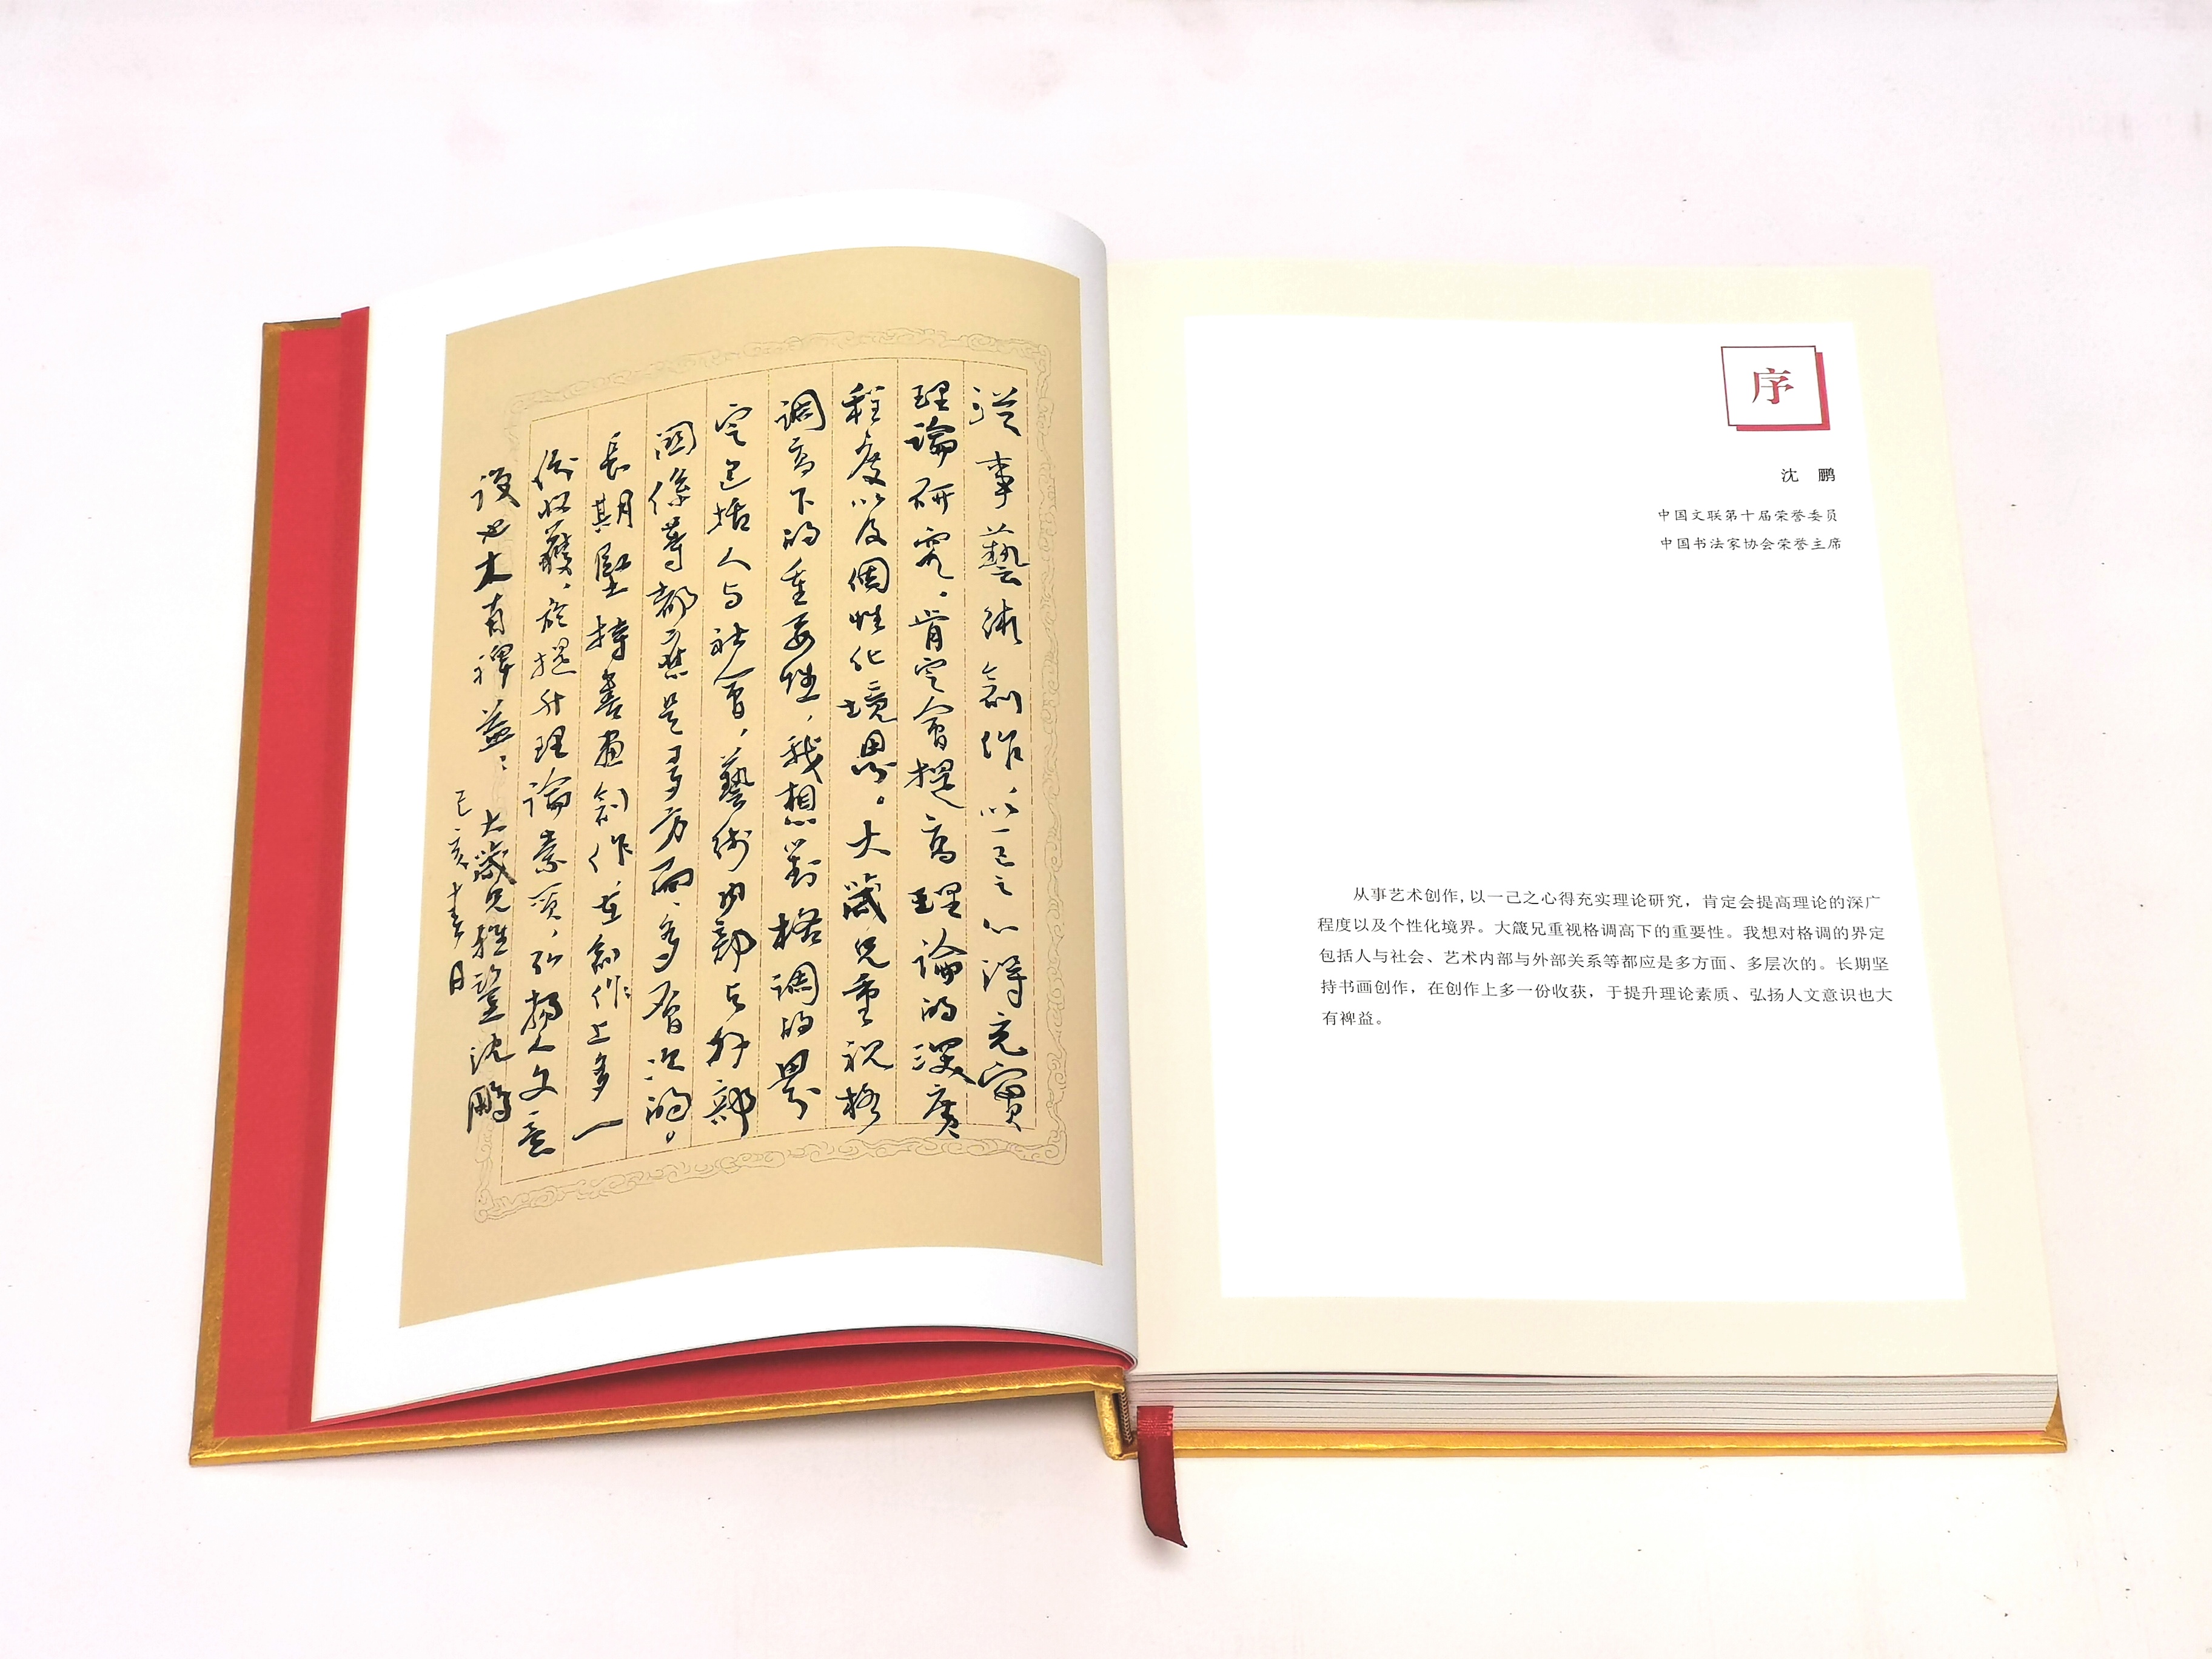 從事藝術創作，以一己之心得充實
理論研究，肯定會提高理論的深廣
程度以及個性化境界。大箴兄重視格
調高下的重要性，我想對格調的界
定包括人与社會，藝術内部与外部
関係等都應是多方面、多層次的。
長期堅持書畫創作在創作上多一
份收穫，於提升理論素質，弘揚人文意
識也大有裨益： 大箴兄雅鑒 沈鵬
己亥
序
沈 鹏
中国文联第十届荣誉委员
中国书法家协会荣誉主席
从事艺术创作,以一己之心得充实理论研究，肯定会提高理论的深广
程度以及个性化境界。大箴兄重视格调高下的重要性。我想对格调的界定
包括人与社会、艺术内部与外部关系等都应是多方面、多层次的。长期坚
持书画创作，在创作上多一份收获，于提升理论素质、弘扬人文意识也大
有裨益。